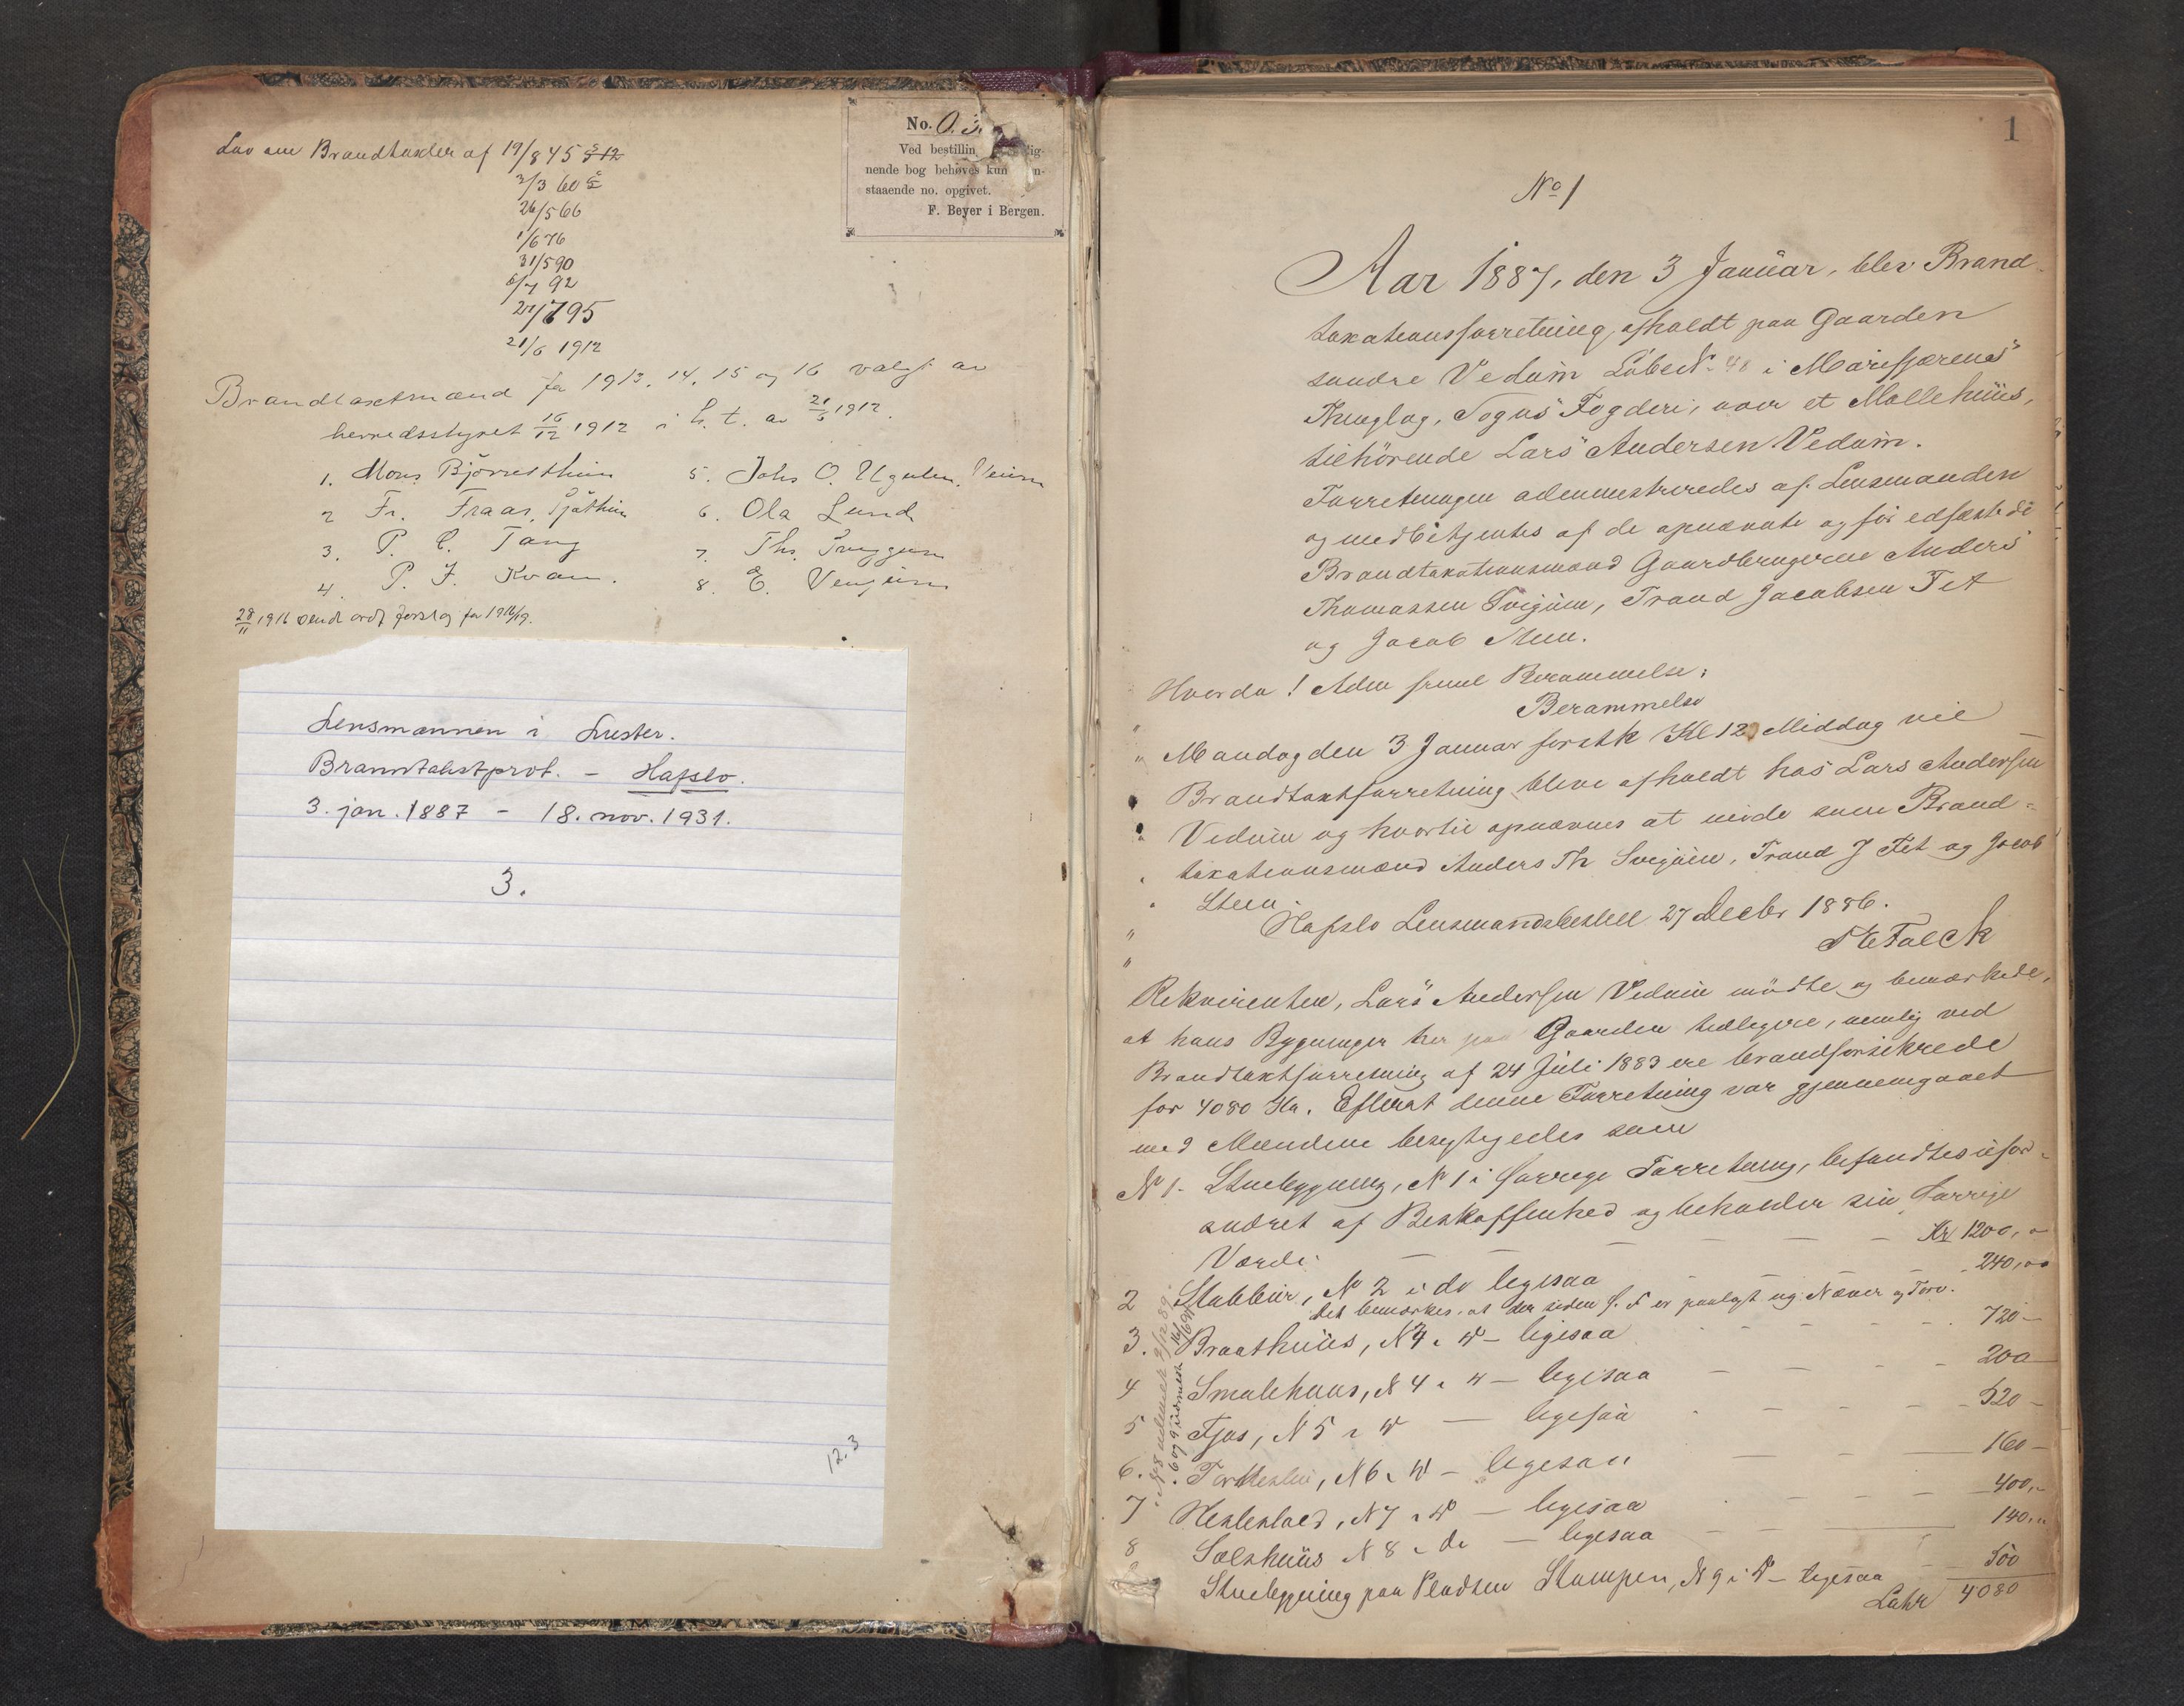 Lov om Brandtakster af 19/8 45 § 12
3/3 60 §
26/5 66
1/6 76
31/5 90
6/7 92
27/7 95
21/6 1912
Brandtaxtmænd for 1913. 14. 15 og 16 valgt av
herredsstyret 16/12 1912 i h. t. av 21/6 1912.
1. Mons Bjørnethun
2 Fr. Fraas,
3. P. C. Tang
4. P. J. Kvam.
5. Johs O. Ugulen.
6. Ola Lund
7. Ths.
8. E. Venjum
28/11 1916 sendt ordf. forslag for 1916/19.
No. 0.
Ved bestillin lig-
nende bog behøves kun n-
staaende no. opgivet.
F. Beyer i Bergen.
Lensmannen i Luster.
Branntakstprot. - Hafslo.
3. jan. 1887 - 18. nov. 1931.
3.
12.3
1
No 1
Aar 1887, den 3 Januar, blev Brand-
taxationsforretning afholdt paa Gaarden
søndre Vedum Løbe N. 48 i Marifjærens
Thinglag, Sogns Fogderi, over et Møllehuus,
tilhørende Lars Andersen Vedum.
Forretningen administreredes af Lensmanden
og medbetjentes af de opnævnte og før edfæstede
Brandtaxationsmænd Gaardbrugerne Anders
Thomassen Svejum, Trond Jacobsen Fet
og Jacob Steen.
Hvorda! Aden freml Berammelse:
Berammelse
" Mandag den 3 Januar førstk Kl 12 Middag vil
Brandtaxtforretning blive afholdt hos Lars Andersen
" Vedum og hvortil opnævnes at møde som Brand-
taxationsmænd Anders Th Svejum, Trond J Fet og Jacob
" Steen.
" Hafslo Lensmandsbestill 27 Decbr 1886.
" Falck
Rekvirenten, Lars Andersen Vedum mødte og bemærkede,
at hans Bygninger her paa Gaarden tidligere, nemlig ved
Brandtaxtforretning af 24 Juli 1883 ere brandforsikrede
for 4080 Kr. Efterat denne Forretning var gjennemgaaet
med Mændene besigtigedes som
No 1. Stuebygning, N 1 i forrige Forretning, befandtes ufor-
andret af Beskaffenhed og beholder sin forrige
Værdi - - - - - Kr 1200, -
2 Stabbur, No 2 i do ligesaa - - - 240,00
Det bemærkes, at der siden f. F er paalagt ny Næver og Torv.
3. Braathuus, N 3 i do - ligesaa - - - 720 -
4 Smalehuus, N 4 i do - ligesaa - - - 200 -
5 Fjøs, N 5 i do - ligesaa - - - 520 -
6. , N 6 i do - ligesaa - - 160 -
7 Hestestald, N 7 i do - ligesaa - - - 400, -
8 Sælshuus N 8 i do - ligesaa - - 140, "
9 Stuebygning paa Pladsen Stumpen, N 9 i do - ligesaa - 500
Latr 4080
N 8 udmeldt 9/12 89.
6 og 9 udmeldt